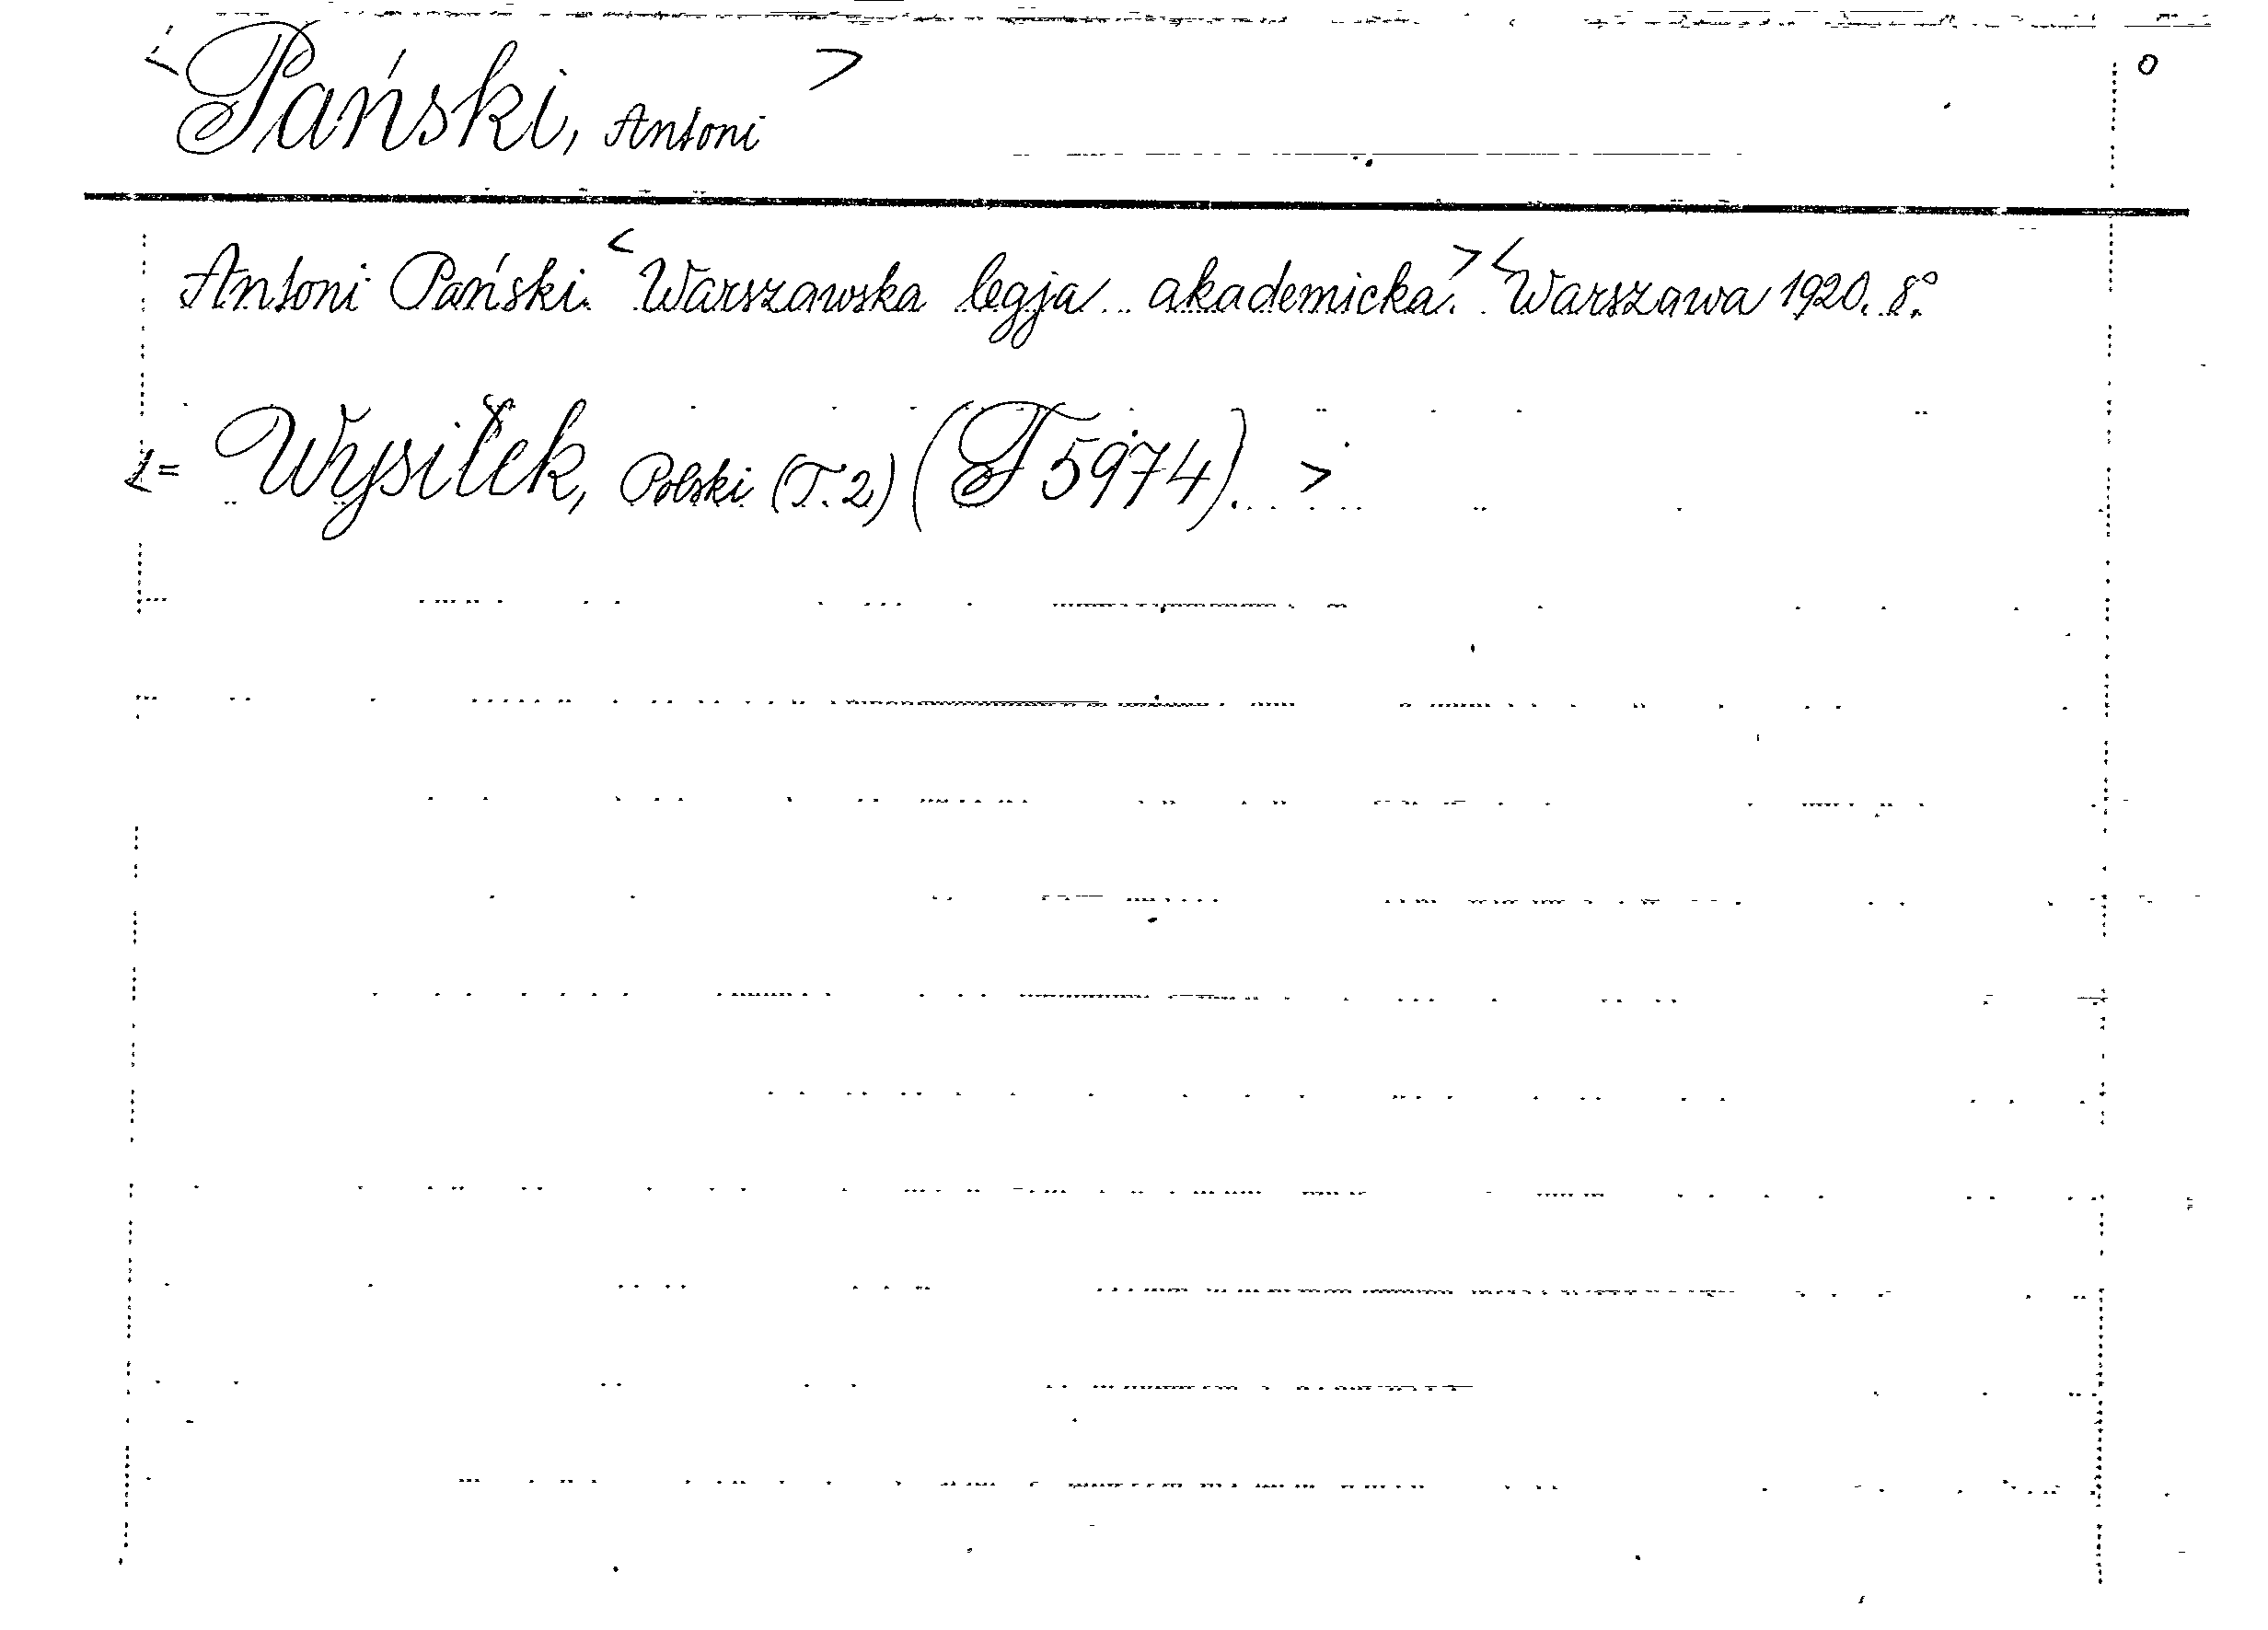 <Pański, Antoni> o
Antoni Pański. <Warszawska legja akademicka.> <Warszawa 1920. 8°.
<= Wysiłek, Polski (T. 2) (T 5974). >